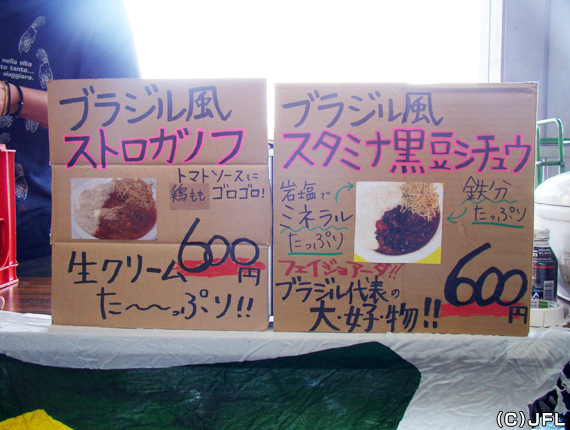 nella vita
to santo...
viaggiare.
ブラジル風
ストロガノフ
トマトソースに
鶏もも ゴロゴロ!
600円
生クリーム
た〜〜っぷり!!
ブラジル風
スタミナ黒豆シチュウ
岩塩で
ミネラル
たっぷり
鉄分
たっぷり
フェイジョアーダ!!
ブラジル代表の
大・好・物!!
600円
(C)JFL